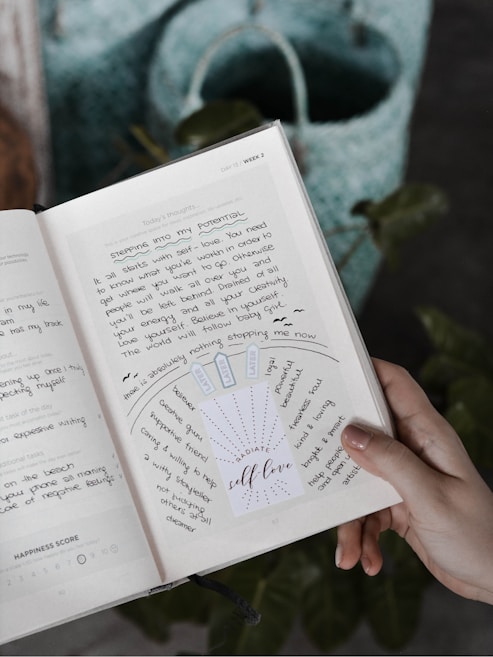 in my life
am
has my track
ening up once I
specting myself
of the day
for expressive writing
on the beach
your phone all morning
of negative feelings
HAPPINESS SCORE
2 3 4 5 6 7 8 9 10
DAY 13 / WEEK 2
Today's thoughts...
STEPPING INTO MY POTENTIAL
It all starts with self-love. You need
to know what you're worth in order to
get where you want to go otherwise
people will walk all over you and
you'll be left behind drained of all
your energy and all your creativity
Love yourself. Believe in yourself.
The world will follow baby girl.
there is absolutely nothing stopping me now
LATER
LATER
LATER
believer
creative guru
supportive friend
caring & willing to help
a witty storyteller
not bridging
others at all
dreamer
RADIATE
self-love
loyal
powerful
beautiful
fearless soul
kind & loving
bright & smart
help people
artist